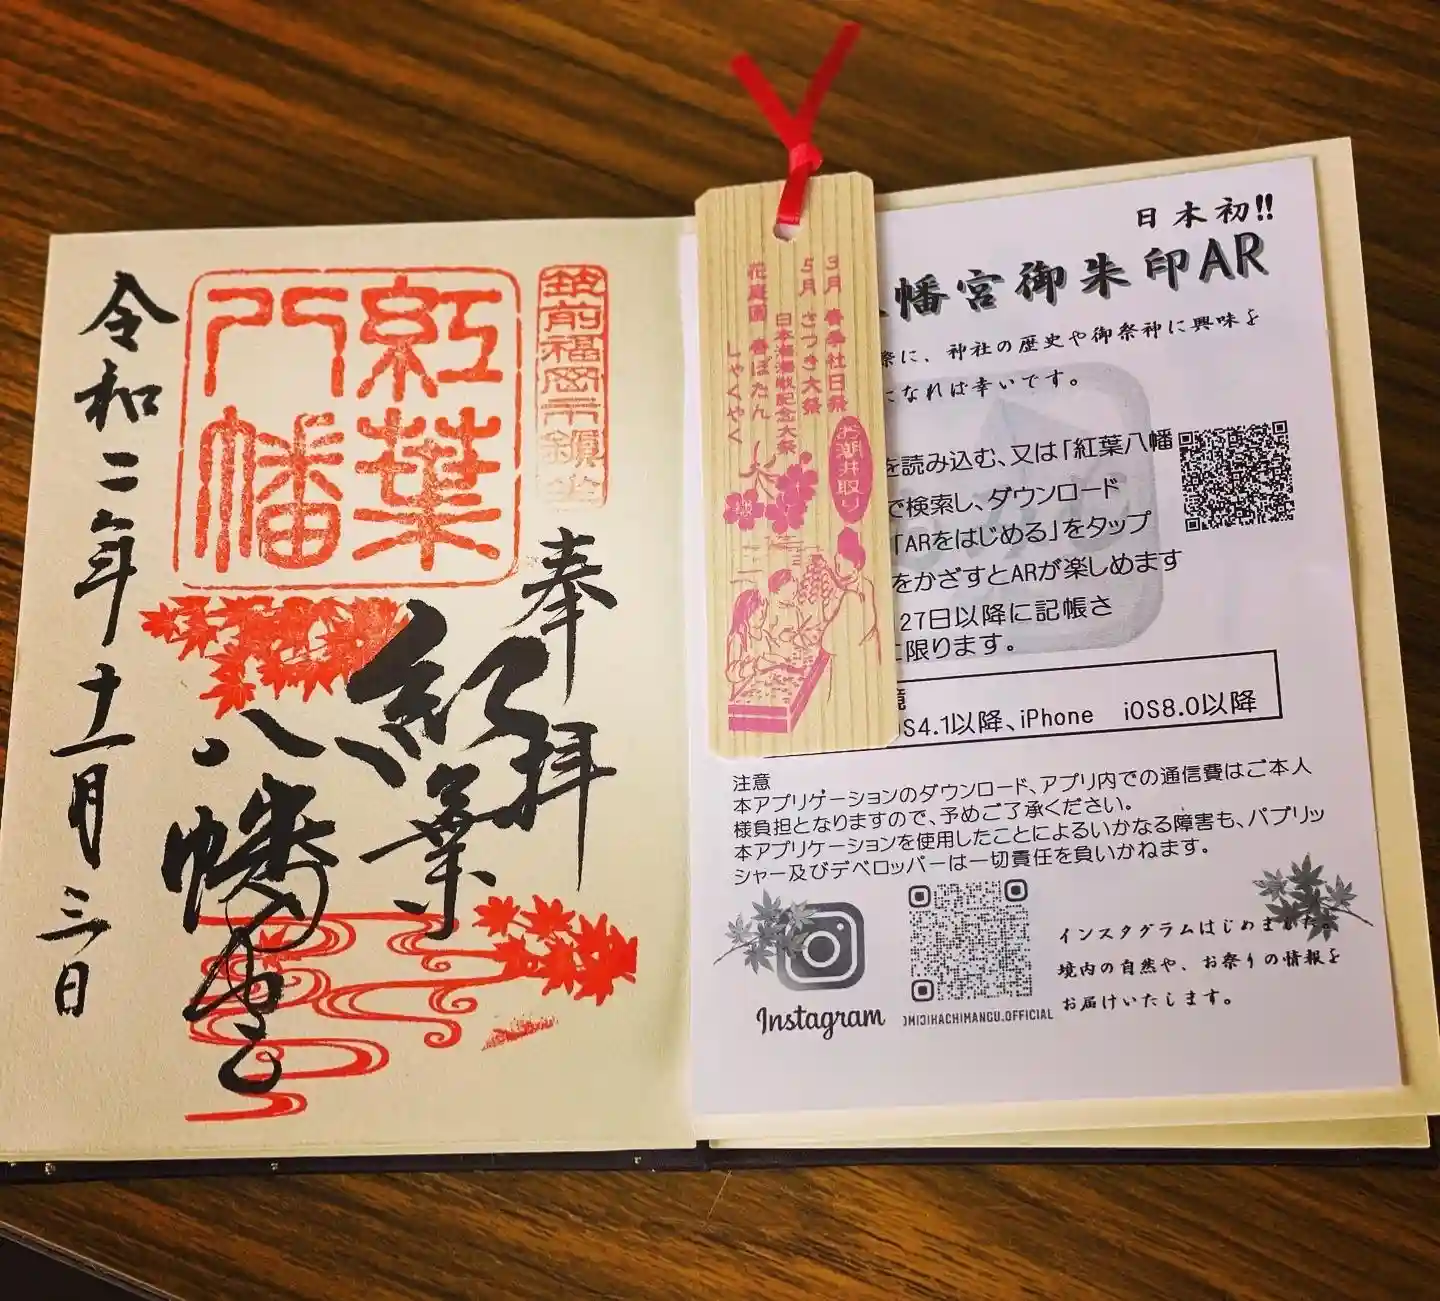 筑前福岡市鎮坐
紅葉
八幡
奉拝
紅葉
八幡宮
令和二年十一月三日
3月 春季社日祭
お潮井取り
5月 さつき大祭
日本海海戦記念大祭
花庭園 春ぼたん
しゃくやく
日本初!!
幡宮御朱印AR
祭に、神社の歴史や御祭神に興味を
になれば幸いです。
を読み込む、又は「紅葉八幡
で検索し、ダウンロード
「ARをはじめる」をタップ
をかざすとARが楽しめます
27日以降に記帳さ
に限ります。
境
S4.1以降、iPhone iOS8.0以降
注意
本アプリケーションのダウンロード、アプリ内での通信費はご本人
様負担となりますので、予めご了承ください。
本アプリケーションを使用したことによるいかなる障害も、パブリッ
シャー及びデベロッパーは一切責任を負いかねます。
Instagram
OMIJIHACHIMANGU.OFFICIAL
インスタグラムはじめました。
境内の自然や、お祭りの情報を
お届けいたします。